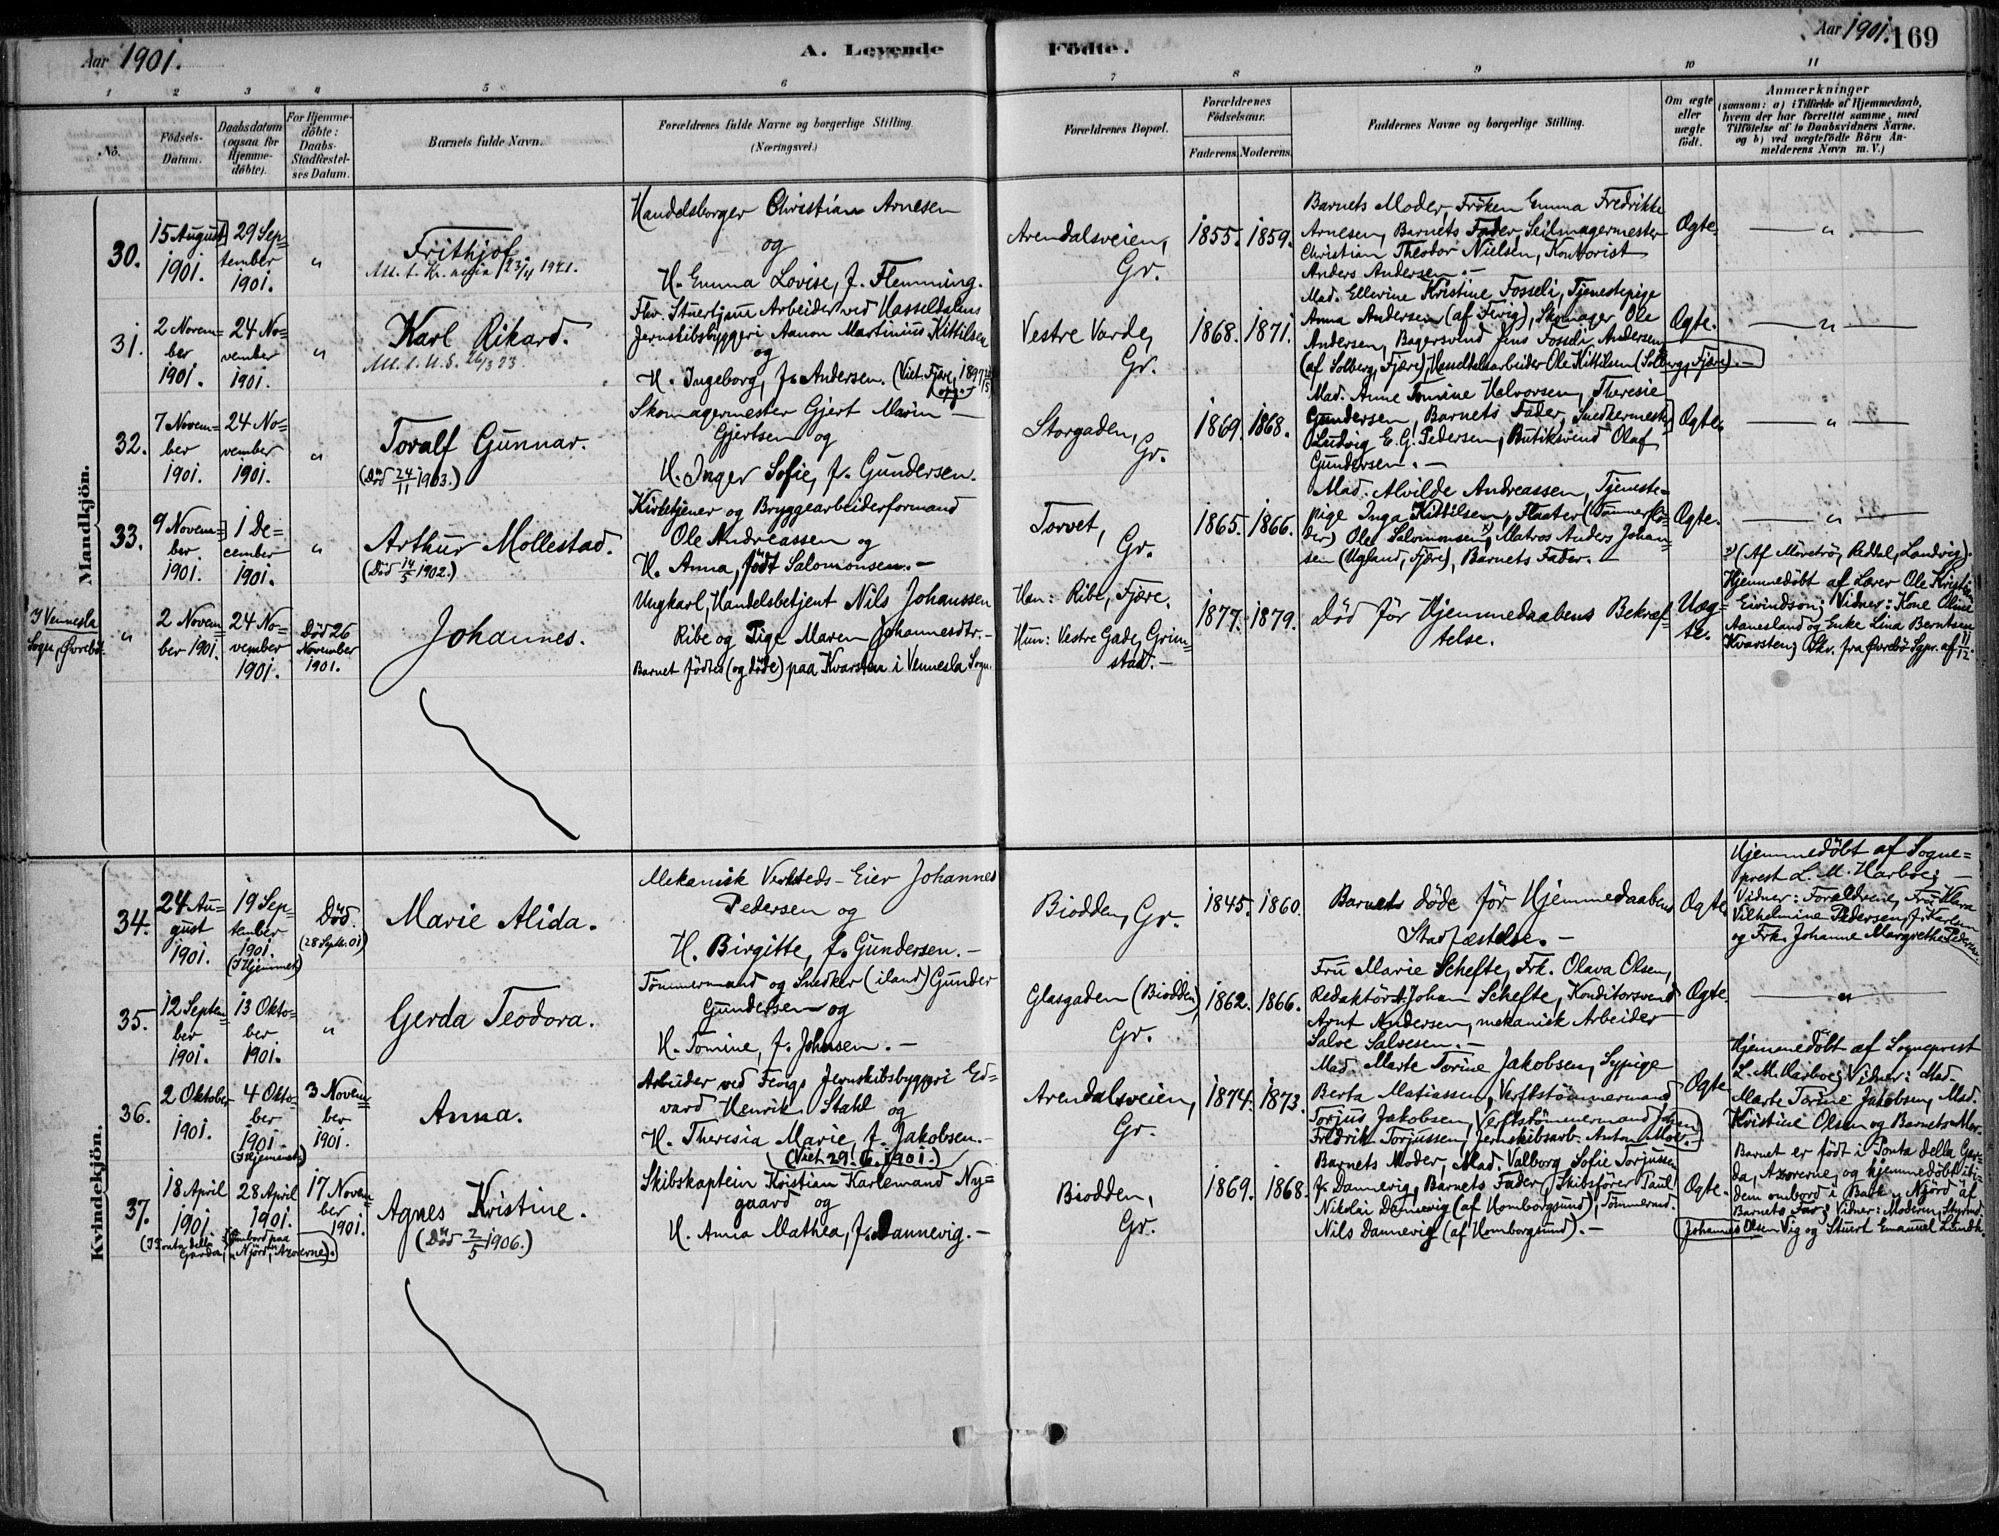 Aar 1901.
A. Levende
Födte.
Aar 1901.
169
1
2
3
4
5
6
7
8
9
10
11
No.
Födsels-
Datum.
Daabsdatum
(ogsaa for
Hjemme-
döbte).
For Hjemme-
döbte:
Daabs-
Stadfæstel-
ses Datum.
Barnets fulde Navn.
Forældrenes fulde Navne og borgerlige Stilling.
(Næringsvei.)
Forældrenes Bopæl.
Forældrenes
Födselsaar.
Faderens.
Moderens.
Faddernes Navne og borgerlige Stilling.
Om ægte
eller
uægte
födt.
Anmærkninger
(saasom: a) i Tilfælde af Hjemmedaab,
hvem der har forrettet samme, med
Tilföielse af to Daabsvidners Navne.
og b) ved uægtefödte Börn An-
melderens Navn m. V.)
Mandkjön.
30.
15 August
1901.
29 Sep=
tember
1901.
"
Frithjof
1921.
Handelsborger Christian Arnesen
og
H. Emma Lovise, f. Flemming.
Arendalsveien,
Gr.
1855.
1859.
Barnets Moder, Fröken Emma Fredrikke
Arnesen, Barnets Fader, Seilmagermester
Christian Theodor Nielsen, Kontorist
Anders Andersen.—
Ægte.
— " —
31.
2 Novem=
ber
1901.
24 No=
vember
1901.
"
Karl Rikard.
Arbeider ved Hasseldalens
Jernskibsbyggeri Aanon Martinius Kittilsen
og
H. Ingeborg, f. Andersen. (Viet Fjære, 1897
Vestre Varde,
Gr.
1868.
1871.
Mad. Ellevine Kristine Fosseli, Tjenestepige
Anna Andersen (af Fevig), Skomager Ole
Andersen, Bagersvend Jens Fosseli Andersen
(af Solberg, Fjære), Ole Kittilsen (Solberg, Fjære).—
Ægte.
— " —
32.
7 Novem=
ber
1901.
24 No=
vember
1901.
"
Toralf Gunnar.
(Död 24/11 1903.)
Skomagermester Gjert Marin —
Gjertsen og
H. Inger Sofie, f. Gundersen.
Storgaden,
Gr.
1869.
1868.
Mad. Anne Tomine Halvorsen, Theresie
Gundersen, Barnets Fader, Snedkermester
Ludvig E. G. Pedersen, Butiksvend Olaf
Gundersen.—
Ægte.
— " —
33.
9 Novem=
ber.
1901.
1 De=
cember
1901.
"
Arthur Mollestad.
(Död 14/5 1902.)
Kirketjener og Bryggearbeiderformand
Ole Andreassen og
H. Anna, födt Salomonsen.—
Torvet,
Gr.
1865.
1866.
Mad. Alvilde Andreassen, Tjeneste=
pige Inga Kittilsen, Flaater (Tömmerflö=
der) Ole Salomonsen, Matros Anders Johan=
sen (Ugland, Fjære), Barnets Fader.—
Ægte.
— " —
(Af Redtel, Landvig).
I Vennesla
Sogn, Øvrebö
"
2 Novem=
ber 1901.
24 No=
vember
1901.
Död 26
November
1901.
Johannes.
Ungkarl, Handelsbetjent Nils Johanssen
Ribe og Pige Maren Johannesdtr.—
Barnet födtes (og döde) paa Kvarsten i Vennesla Sogn.
Han: Ribe, Fjære.
Hun: Vestre Gade, Grim=
stad.—
1877.
1879.
Död för Hjemmedaabens Bekræf=
telse.
Uæg=
te.
Hjemmedöbt af Lærer Ole Kristian
Eivindson; Vidner: Kone Oline
Aanesland og Enke Lina Berntsen
Kvarsten; Skr. fra Øvrebö Sgpr. af 11/12.
Kvindekjön.
34.
24 Au=
gust
1901.
19 Sep=
tember
1901.
(I Hjemmet)
Död.
(28 Septr. 01)
Marie Alida.
Mekanisk Verksteds-Eier Johannes
Pedersen og
H. Birgitte, f. Gundersen.—
Biodden, Gr.
1845.
1860.
Barnet döde för Hjemmedaabens
Stadfæstelse.—
Ægte
Hjemmedöbt af Sogne=
prest L. M. Harboe; —
Vidner: Forældrene, Fru Klara
Vilhelmine Pedersen, f. Karlsen
og Frk. Johanne Margrethe Pedersen.
35.
12 Septem=
ber
1901.
13 Okto=
ber
1901.
"
Gerda Teodora.
Tömmermand og Snedker (iland) Gunder
Gundersen og
H. Tomine, f. Johnsen.—
Glasgaden (Biodden)
Gr.
1862.
1866.
Fru Marie Schefte, Frk. Olava Olsen,
Redaktör A. Johan Schefte, Konditorsvend
Arnt Andersen, mekanisk Arbeider
Salve Salvesen.—
Ægte.
— " —
36.
2 Oktober
1901.
4 Okto=
ber
1901.
(I Hjemmet)
3 Novem=
ber
1901.
Anna.
Arbeider ved Fevigs Jernskibsbyggeri Ed=
vard Henrik Stahl og
H. Theresia Marie, f. Jakobsen.
(Viet 29. 6. 1901.)
Arendalsveien,
Gr.
1874.
1873.
Mad. Marte Torine Jakobsen, Sypige
Berta Matiassen, Verftstömmermand
Torjus Jakobsen, Verftstömmermand
Fredrik Torjussen, Jernskibsarb. Anton
Ægte
Hjemmedöbt af Sogneprest
L. M. Harboe; Vidner: Mad.
Marte Torine Jakobsen, Mad.
Kristine Olsen og Barnets Mor.
37.
18 April
1901.
(I Ponta della
Garda,
28 April
1901.
(Ombord paa
"Njörd", Azorerne).
17 Novem=
ber
1901.
Agnes Kristine.
(Död 2/5 1906.)
Skibskaptein Kristian Karlemand Ny=
gaard og
H. Anna Mathea, f. Dannevig.—
Biodden,
Gr.
1869.
1868.
Barnets Moder, Mad. Valborg Sofie Torjussen
f. Dannevig, Barnets Fader, Skibsförer Paul
Nikolai Dannevig (af Homborgsund), Tömmermd.
Nils Dannevig (af Homborgsund).—
Ægte.
Barnet er födt i Ponta della Gar=
da, Azorerne, og hjemmedöbt
dem ombord i Bark "Njörd" af
Barnets Far; Vidner: Moderen, Styrmd.
Johannes Olsen Vig og Stuert Emanuel Lundh.